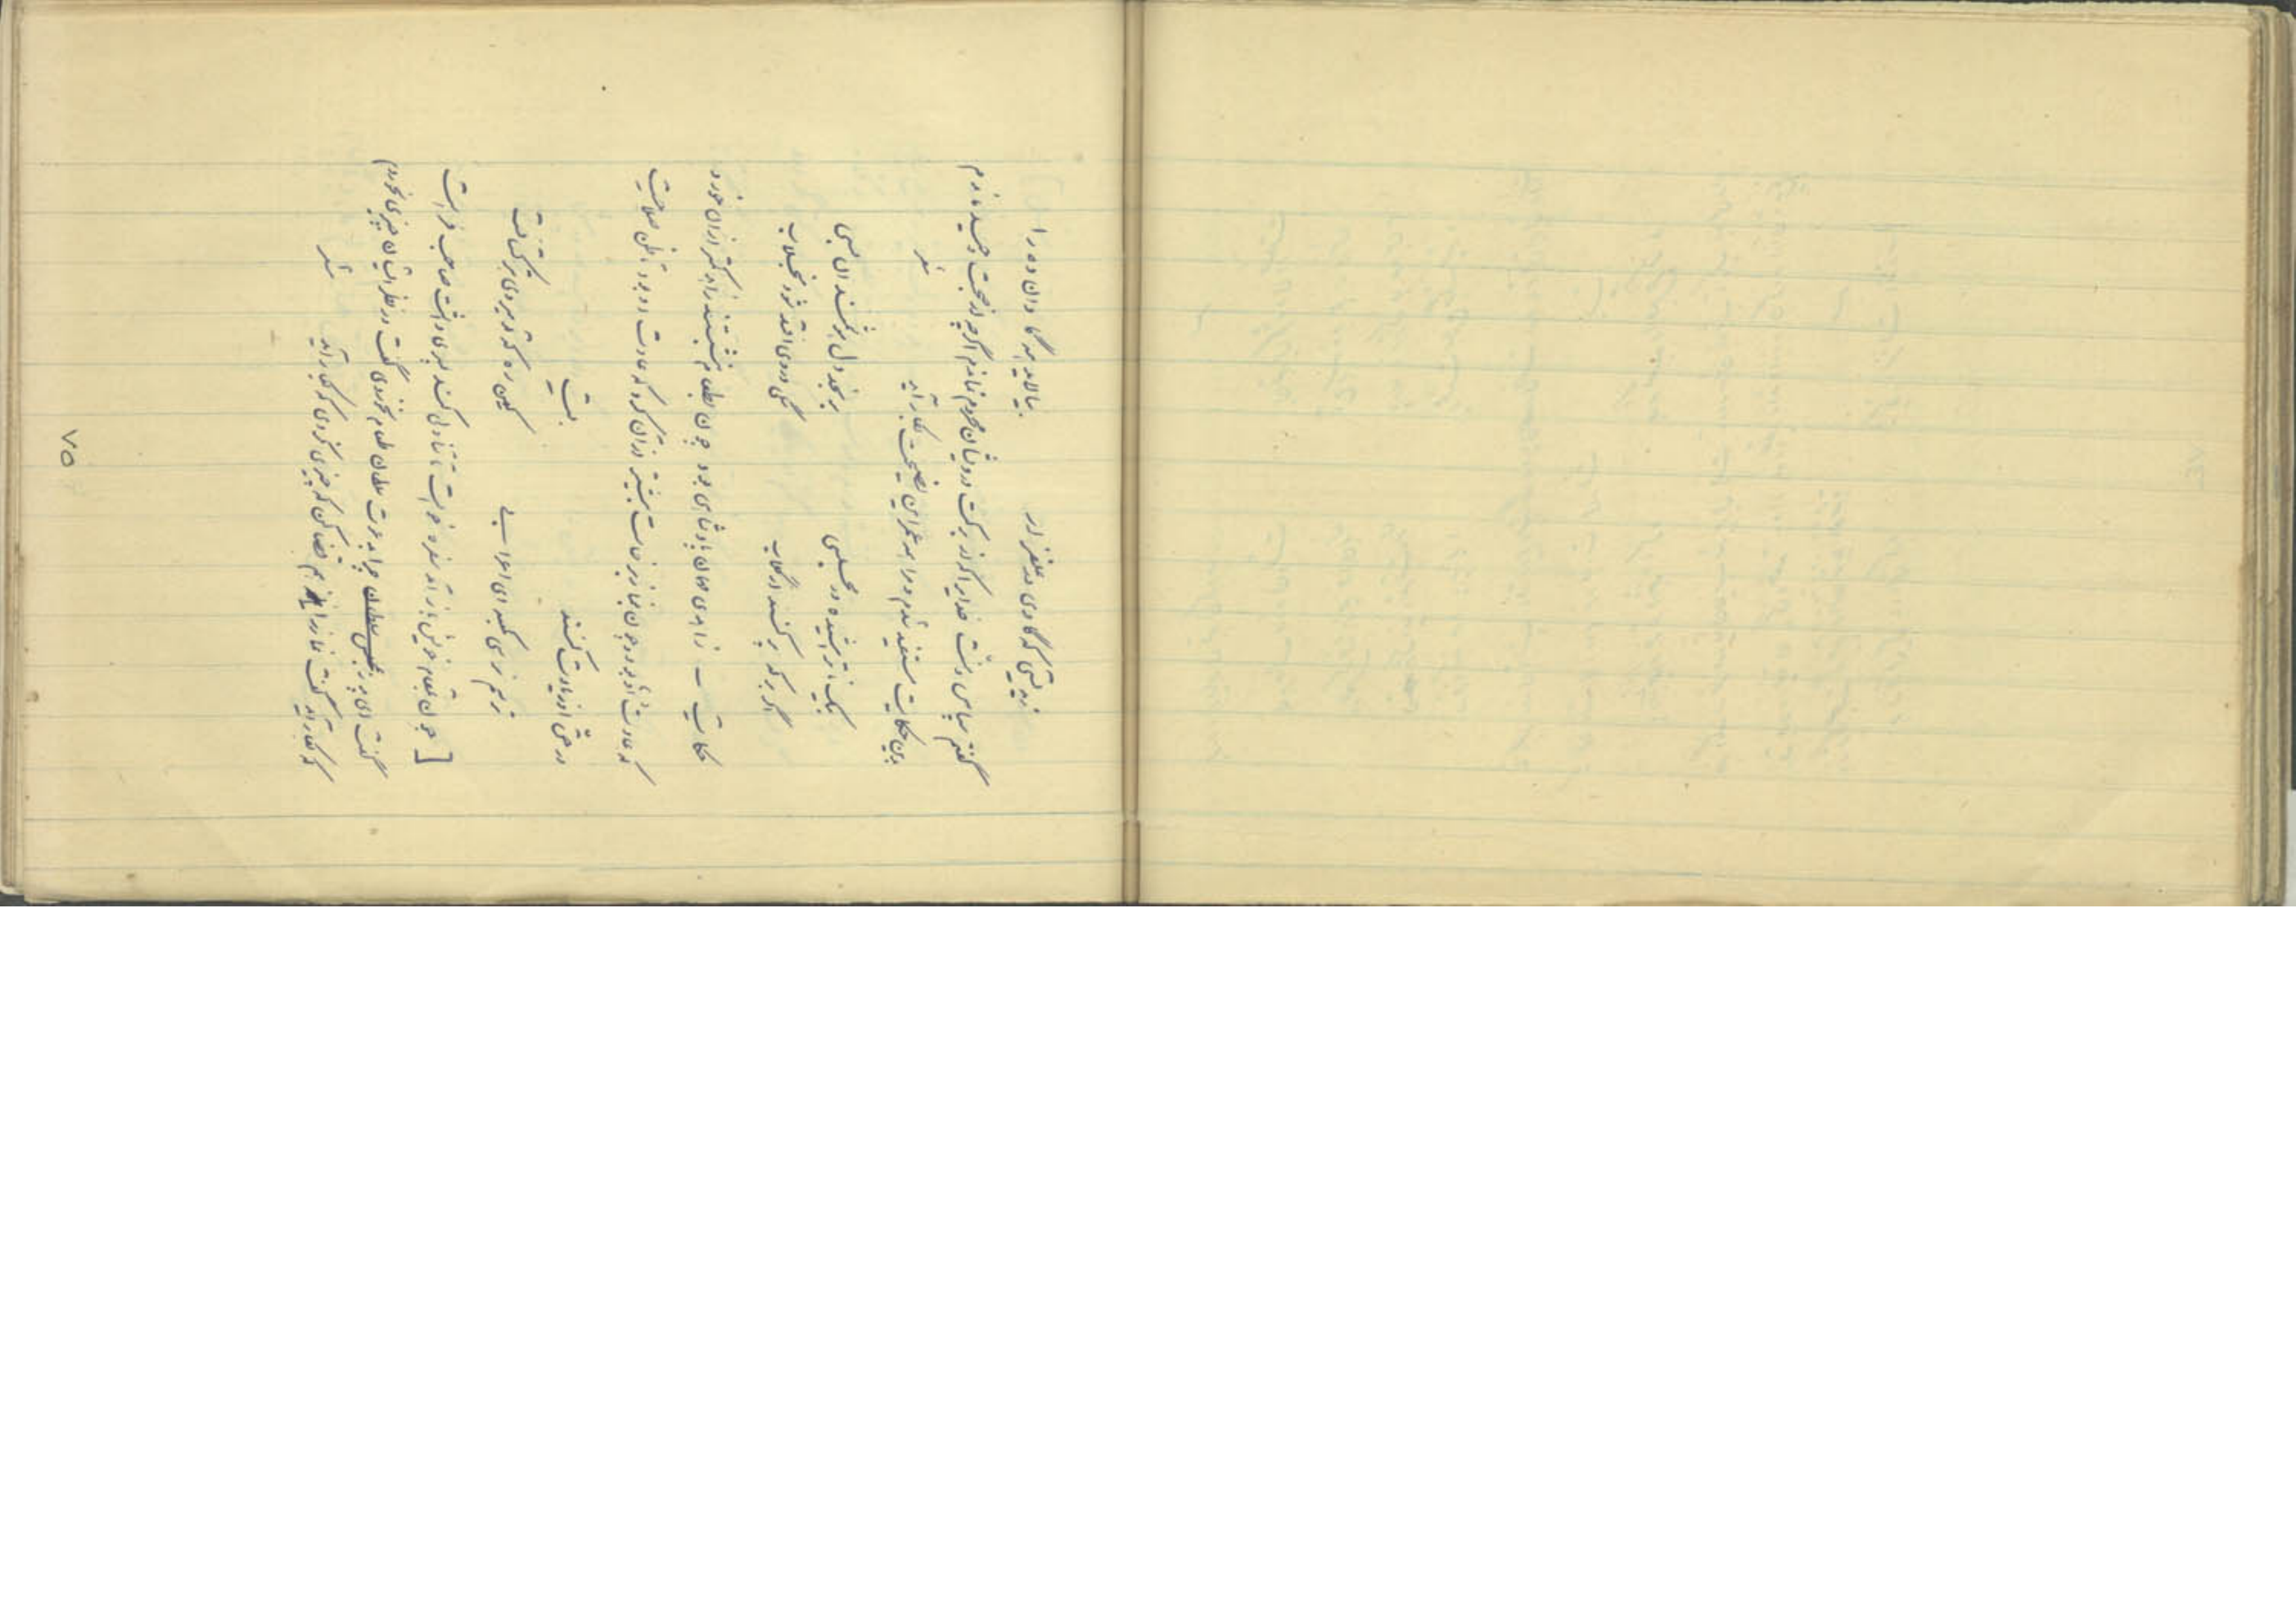 ندیدستی که گاوی در علفزار    بیالاید همه گاوان ده را
گفتم سپاس و منت خدایرا که از برکت درویشان محروم نماندم اگرچه از صحبت وحید ماندم
بدین حکایت مستفید شدم و مرا همه عمر این نصیحت بکار آید
شعر
بیک ناتراشیده در مجلسی    برنجد دل هوشمندان بسی
اگر برکه پر کنند از گلاب    سگی در وی افتد شود منجلاب
حکایت – زاهدی مهمان پادشاهی بود چون بطعام بنشستند زاهد کمتر از آن خورد
که عادت او بود و چون بنماز برخاست بیشتر از آن کرد که عادت او بود تا ظن صلاحیت
در حق او زیادت کنند    بیت
ترسم نرسی بکعبه ای اعرابی    کین ره که تو میروی بترکستانست
[چون بمقام خویش باز آمد سفره خواست تا تناول کند پسری داشت صاحب فراست
گفت ای پدر بمجلس سلطان چرا بدعوت سلطان طعام نخوردی گفت در نظر ایشان چیزی نخوردم
که بکار آید گفت نماز را هم قضا کن که چیزی نکردی که بکار آید    شعر
۷۵